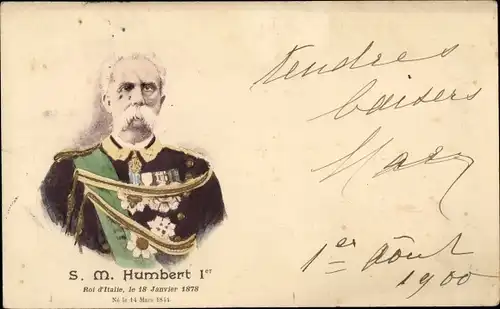 tendres
baisers
S. M. Humbert Ier
Roi d'Italie, le 18 Janvier 1878
Né le 14 Mars 1844
1er Août
1900